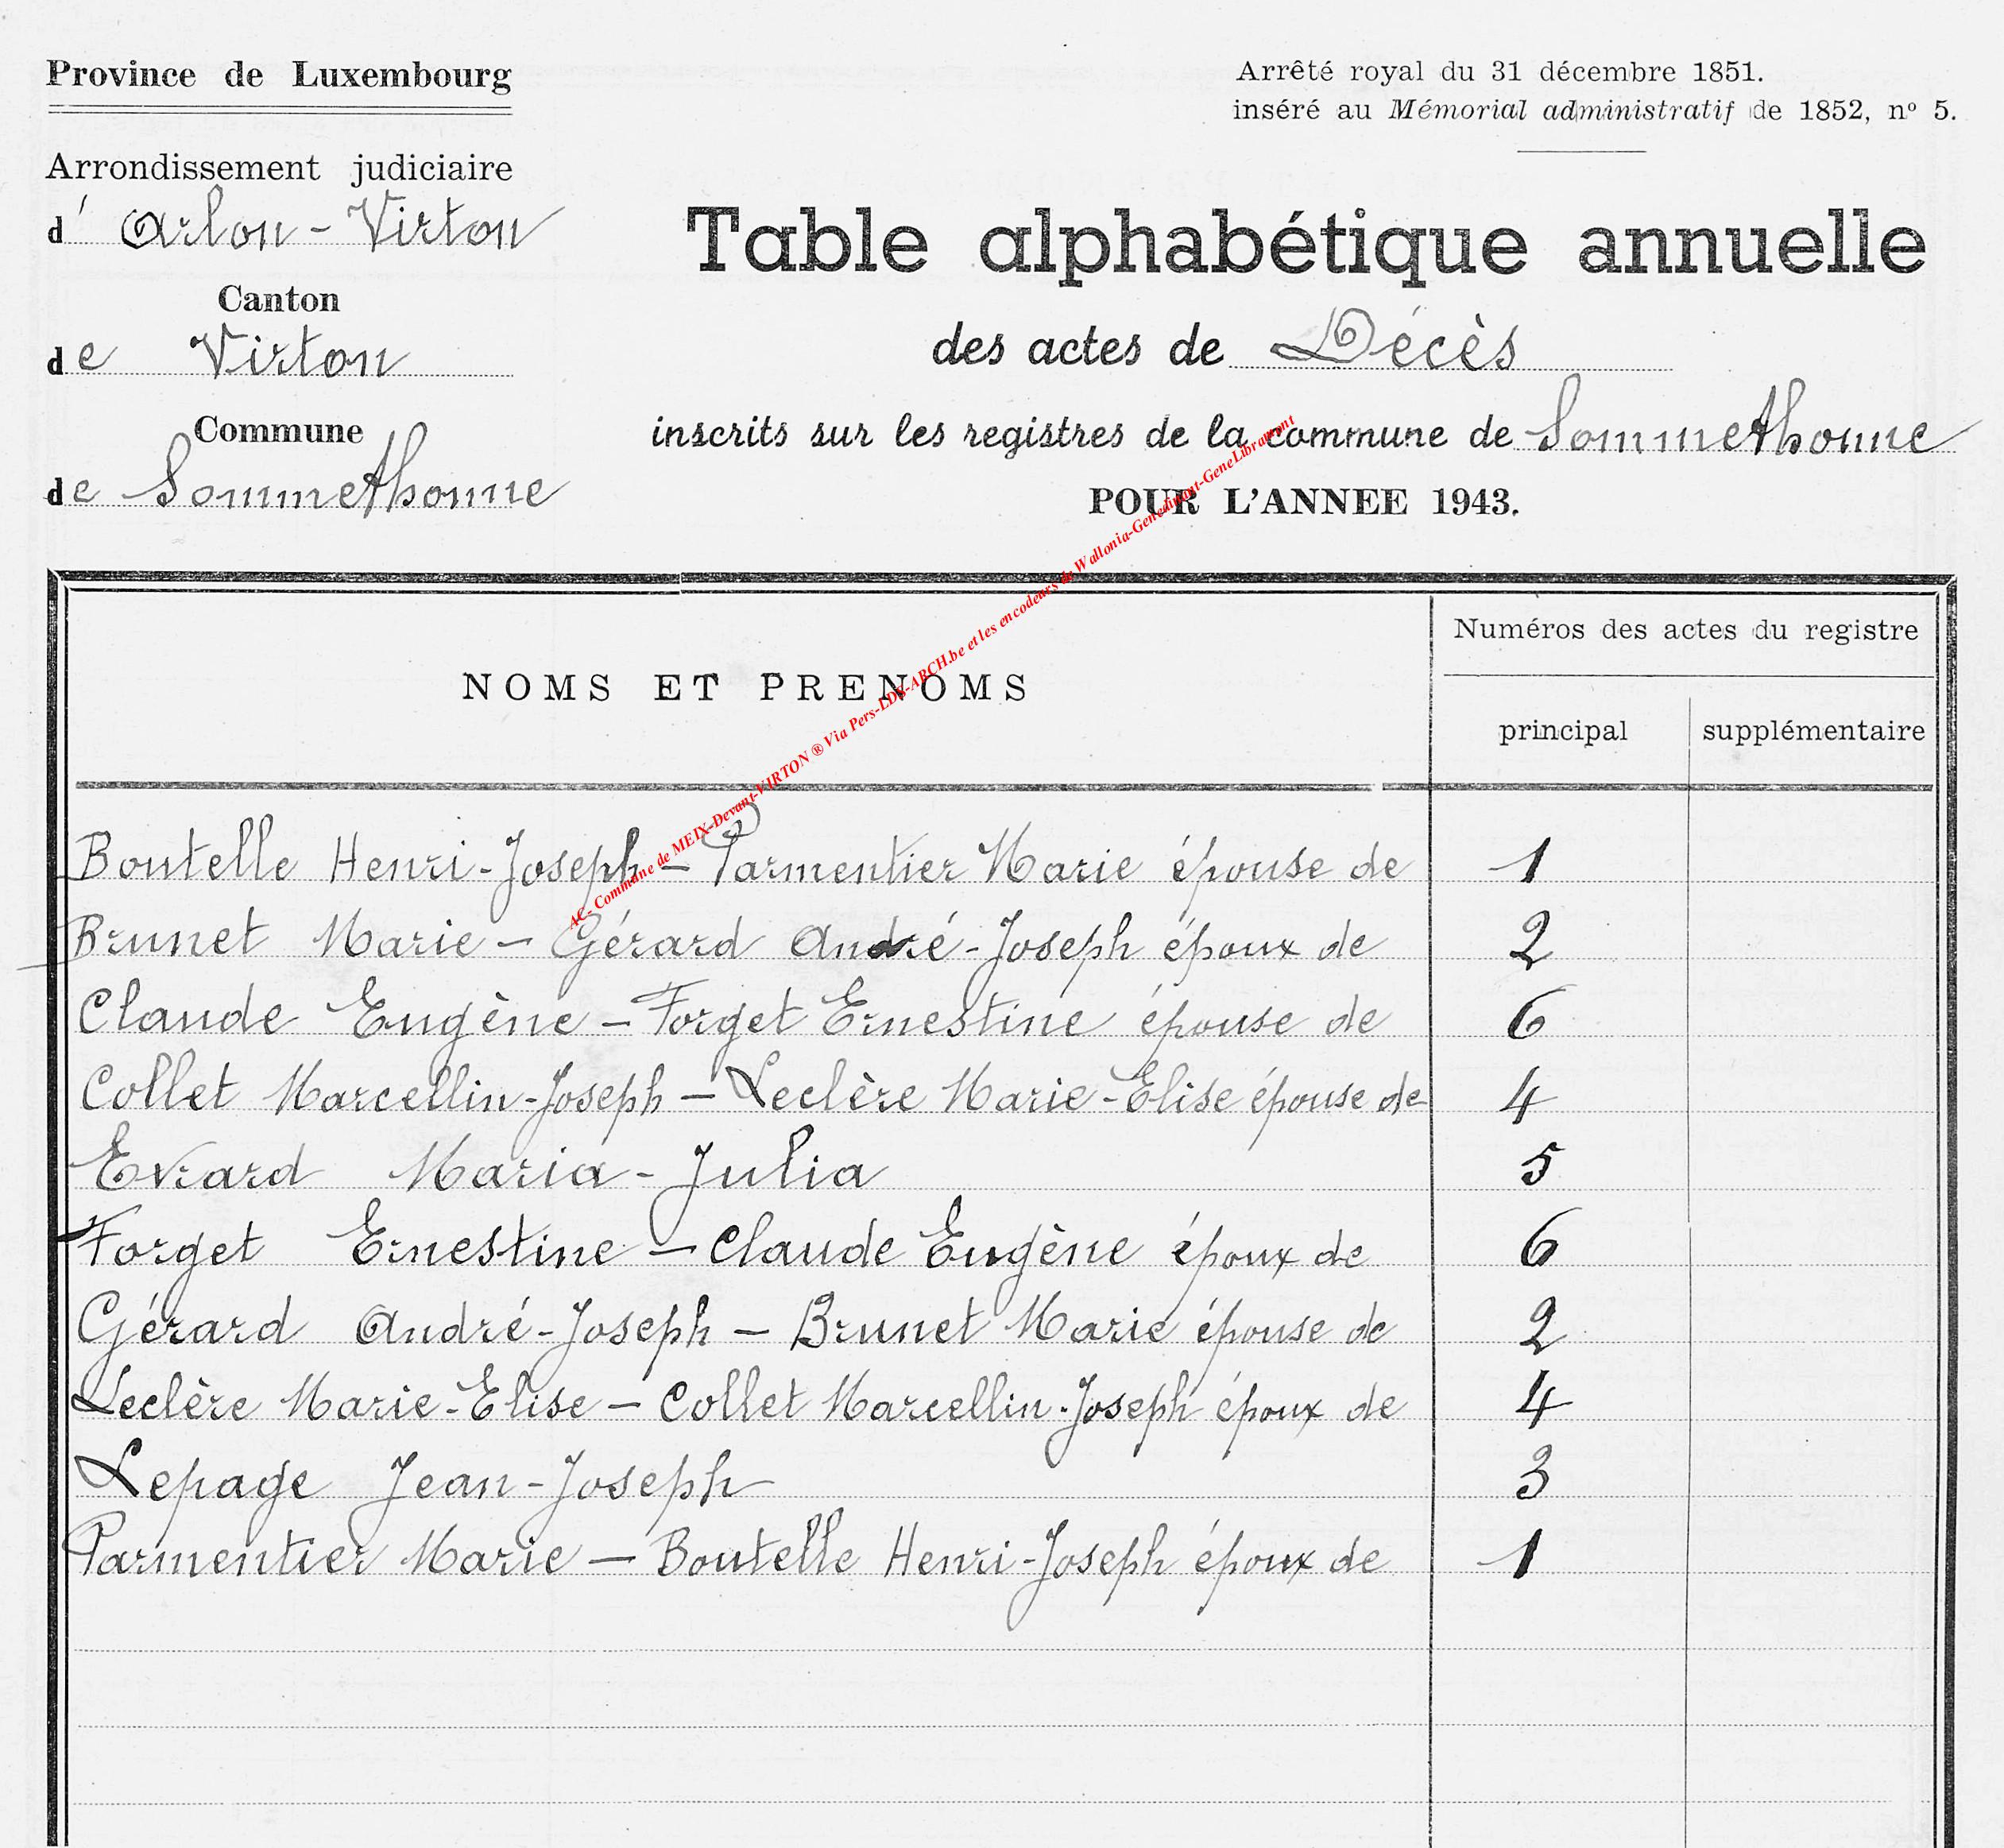 Province de Luxembourg
Arrondissement judiciaire
d' Arlon - Virton
Canton
de Virton
Commune
de Sommethonne
Arrêté royal du 31 décembre 1851.
inséré au Mémorial administratif de 1852, nº 5.
Table alphabétique annuelle
des actes de Décès
inscrits sur les registres de la commune de Sommethonne
POUR L'ANNEE 1943.
NOMS ET PRENOMS
Numéros des actes du registre
principal supplémentaire
Boutelle Henri-Joseph - Parmentier Marie épouse de 1
Brunet Marie - Gérard André-Joseph époux de 2
Claude Eugène - Forget Ernestine épouse de 6
Collet Marcellin-Joseph - Leclère Marie-Elise épouse de 4
Evrard Maria-Julia 5
Forget Ernestine - Claude Eugène époux de 6
Gérard André-Joseph - Brunet Marie épouse de 2
Leclère Marie-Elise - Collet Marcellin-Joseph époux de 4
Lepage Jean-Joseph 3
Parmentier Marie - Boutelle Henri-Joseph époux de 1
AC- Commune de MEIX-Devant-VIRTON ® Via Pers-LDS-ARCH.be et les encodeurs de Wallonia-Genedinant-GeneLibramont